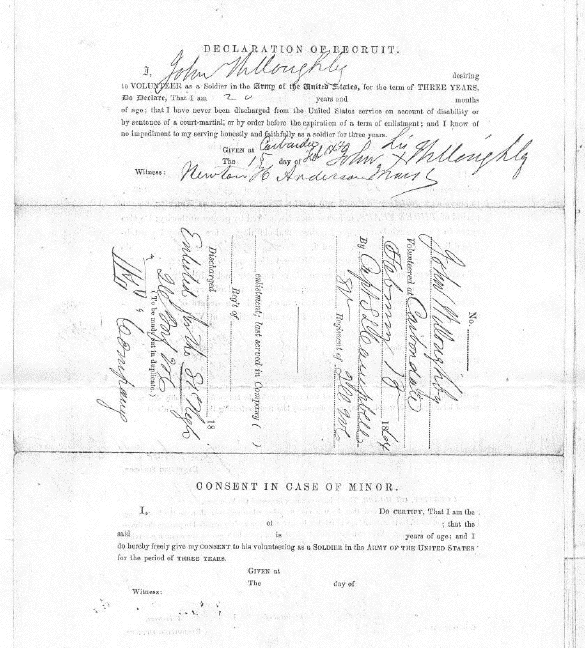 DECLARATION OF RECRUIT.
I, John Willoughby desiring
to VOLUNTEER as a Soldier in the Army of the United States, for the term of THREE YEARS,
Do Declare, That I am 20 years and months
of age; that I have never been discharged from the United States service on account of disability or
by sentence of a court-martial, or by order before the expiration of a term of enlistment; and I know of
no impediment to my serving honestly and faithfully as a soldier for three years.
GIVEN at Carbondale
The 18 day of Feb 1864 John his X Willoughby
Witness: Newton H Anderson mark
No.
John Willoughby
Volunteered at Carbondale
18 1864
By Capt S Campbell
Regiment of Ill Vols
enlistment; last served in Company ( )
Reg't of
Discharged 18
Enlisted for the 81st Regt
Ill Vol
(To be made out in duplicate.)
Company
CONSENT IN CASE OF MINOR.
I, Do CERTIFY, That I am the
of ; that the
said is years of age; and I
do hereby freely give my CONSENT to his volunteering as a SOLDIER in the ARMY OF THE UNITED STATES
for the period of THREE YEARS.
GIVEN at
The day of
Witness: